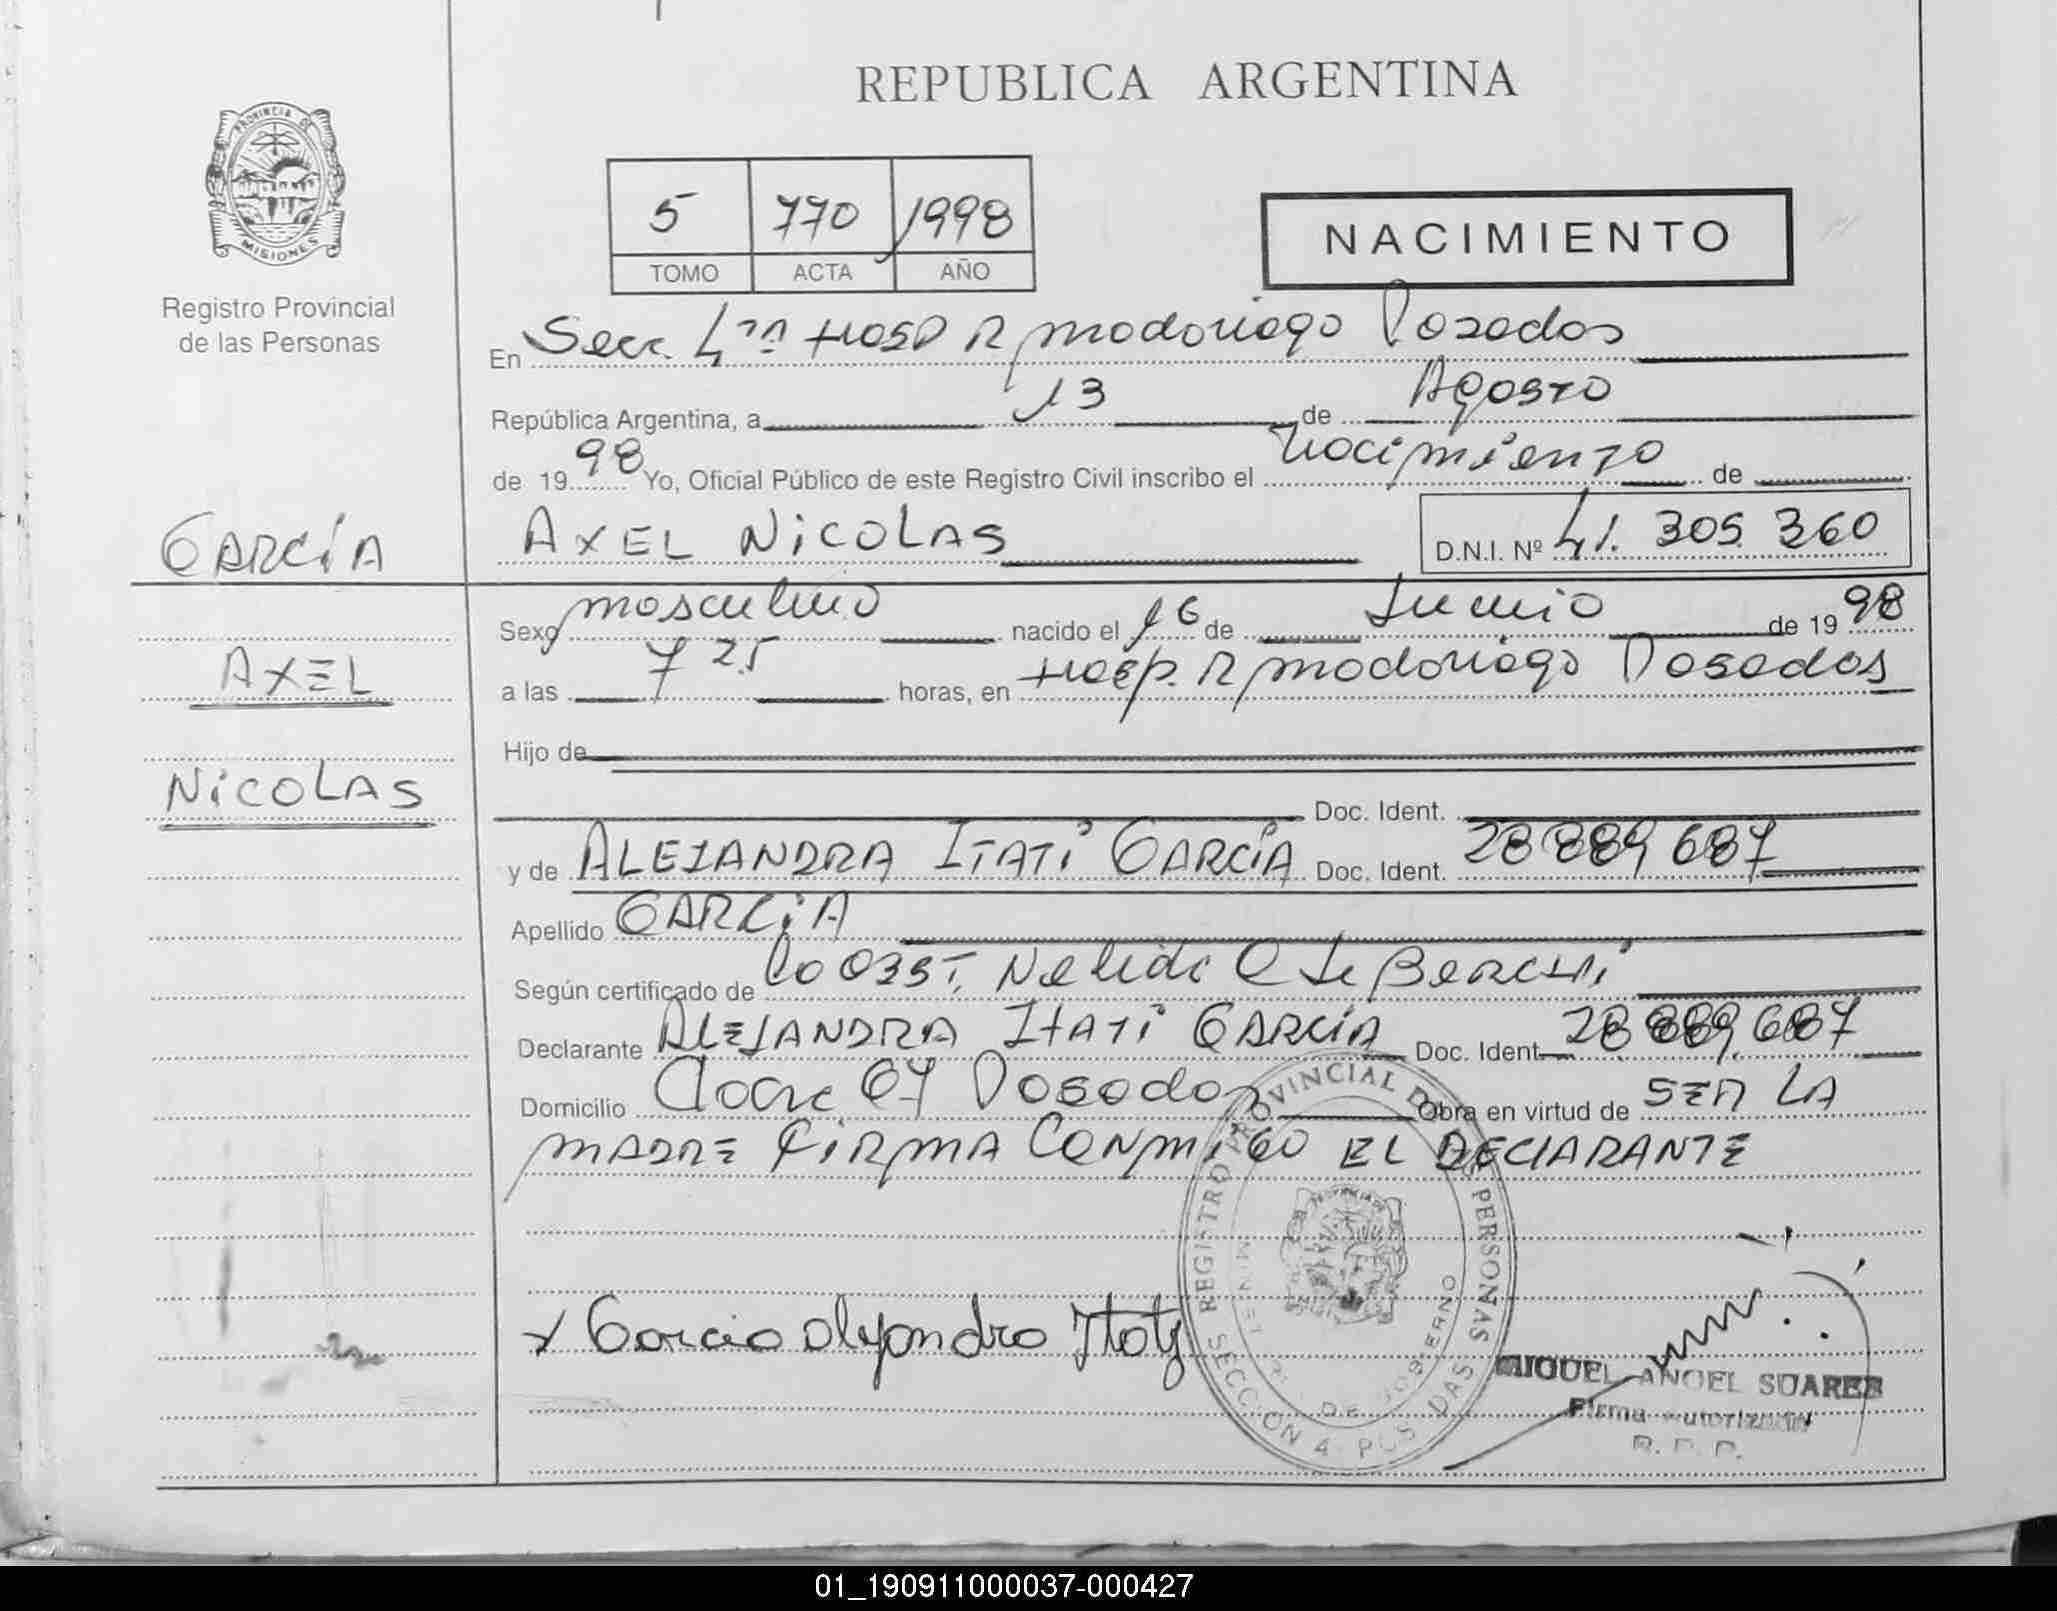 REPUBLICA ARGENTINA
PROVINCIA DE
MISIONES
Registro Provincial
de las Personas
5 770 1998
TOMO ACTA AÑO
NACIMIENTO
En Secc. 4ta Hosp R Madariaga Posadas
República Argentina, a 13 de Agosto
de 1998 Yo, Oficial Público de este Registro Civil inscribo el nacimiento de
GARCÍA
AXEL NICOLAS D.N.I. Nº 41.305.360
Sexo masculino nacido el 16 de Junio de 1998
AXEL
a las 7 25 horas, en Hosp. R Madariaga Posadas
Hijo de
NICOLAS
Doc. Ident.
y de ALEJANDRA ITATÍ GARCÍA Doc. Ident. 28 889 687
Apellido GARCÍA
Según certificado de Nelida
Declarante ALEJANDRA ITATÍ GARCÍA Doc. Ident. 28 889.687
Domicilio 67 Posadas Obra en virtud de SER LA
MADRE FIRMA CONMIGO EL DECLARANTE
x Garcia alejandra Itati
REGISTRO PROVINCIAL DE PERSONAS
SECCION 4 POSADAS
DE GOBIERNO
MIGUEL ANGEL SUAREZ
Firma Autorización
R. P. P.
01_190911000037-000427